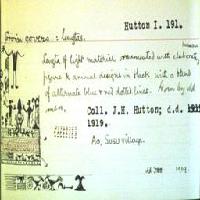 Hutton I. 191.
covers : lengths.
Length of light material ornamented with elaborate
figure & animal designs in black, with a band
of alternate blue & red dotted lines. Worn by old
men.
Coll. J.H. Hutton; d.d.
1919.
Ao, Susu village.